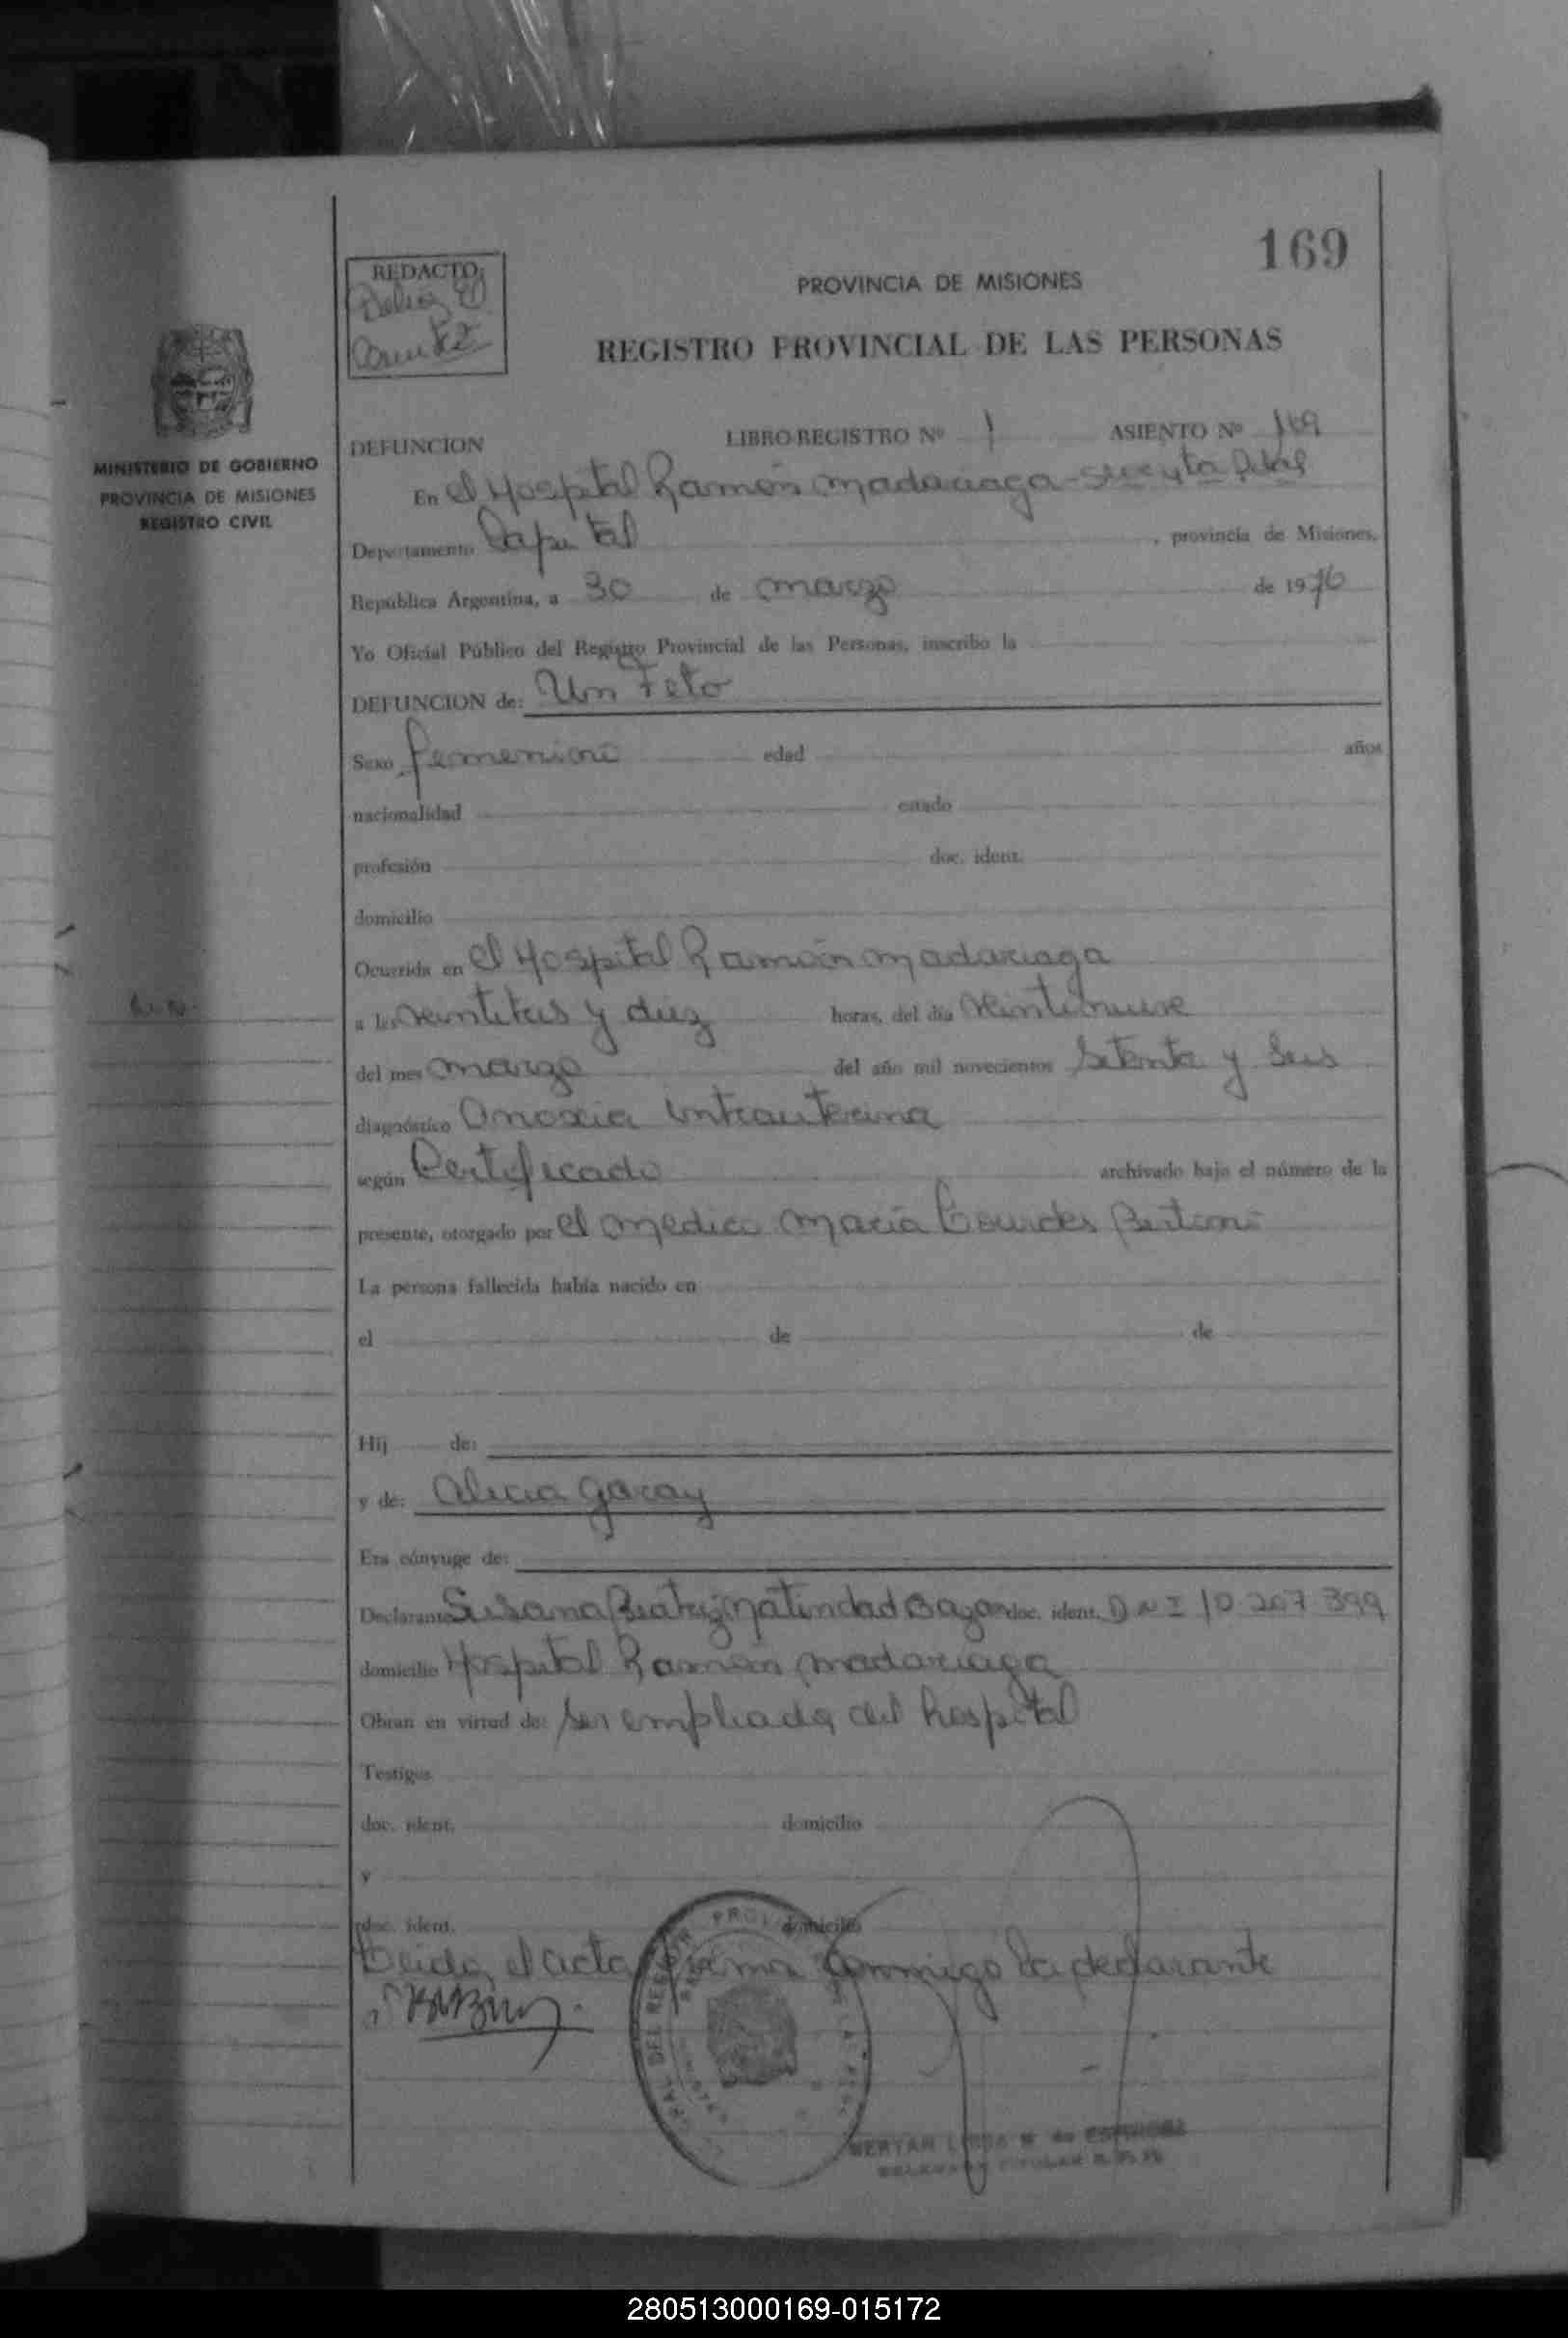 169
REDACTO:
PROVINCIA DE MISIONES
REGISTRO PROVINCIAL DE LAS PERSONAS
MINISTERIO DE GOBIERNO
PROVINCIA DE MISIONES
REGISTRO CIVIL
DEFUNCION LIBRO REGISTRO Nº 1 ASIENTO Nº 169
En el Hospital Ramón Madariaga
Departamento Capital, provincia de Misiones,
República Argentina, a 30 de marzo de 1976
Yo Oficial Público del Registro Provincial de las Personas, inscribo la
DEFUNCION de: Un Feto
Sexo femenino edad años
nacionalidad estado
profesión doc. ident.
domicilio
Ocurrida en el Hospital Ramón Madariaga
a las veintitres y diez horas, del día veintinueve
del mes marzo del año mil novecientos Setenta y Seis
diagnóstico Anoxia intrauterina
según Certificado archivado bajo el número de la
presente, otorgado por el medico María Lourdes Bertoni
La persona fallecida había nacido en
el de de
Hij de:
y de: Alicia Garay
Era cónyuge de:
Declarante Susana Beatriz Natividad Bazan doc. ident. DNI 10.207.399
domicilio Hospital Ramón Madariaga
Obran en virtud de: ser empleada del hospital
Testigos
doc. ident. domicilio
y
doc. ident. domicilio
Leida el acta firma conmigo la declarante
280513000169-015172